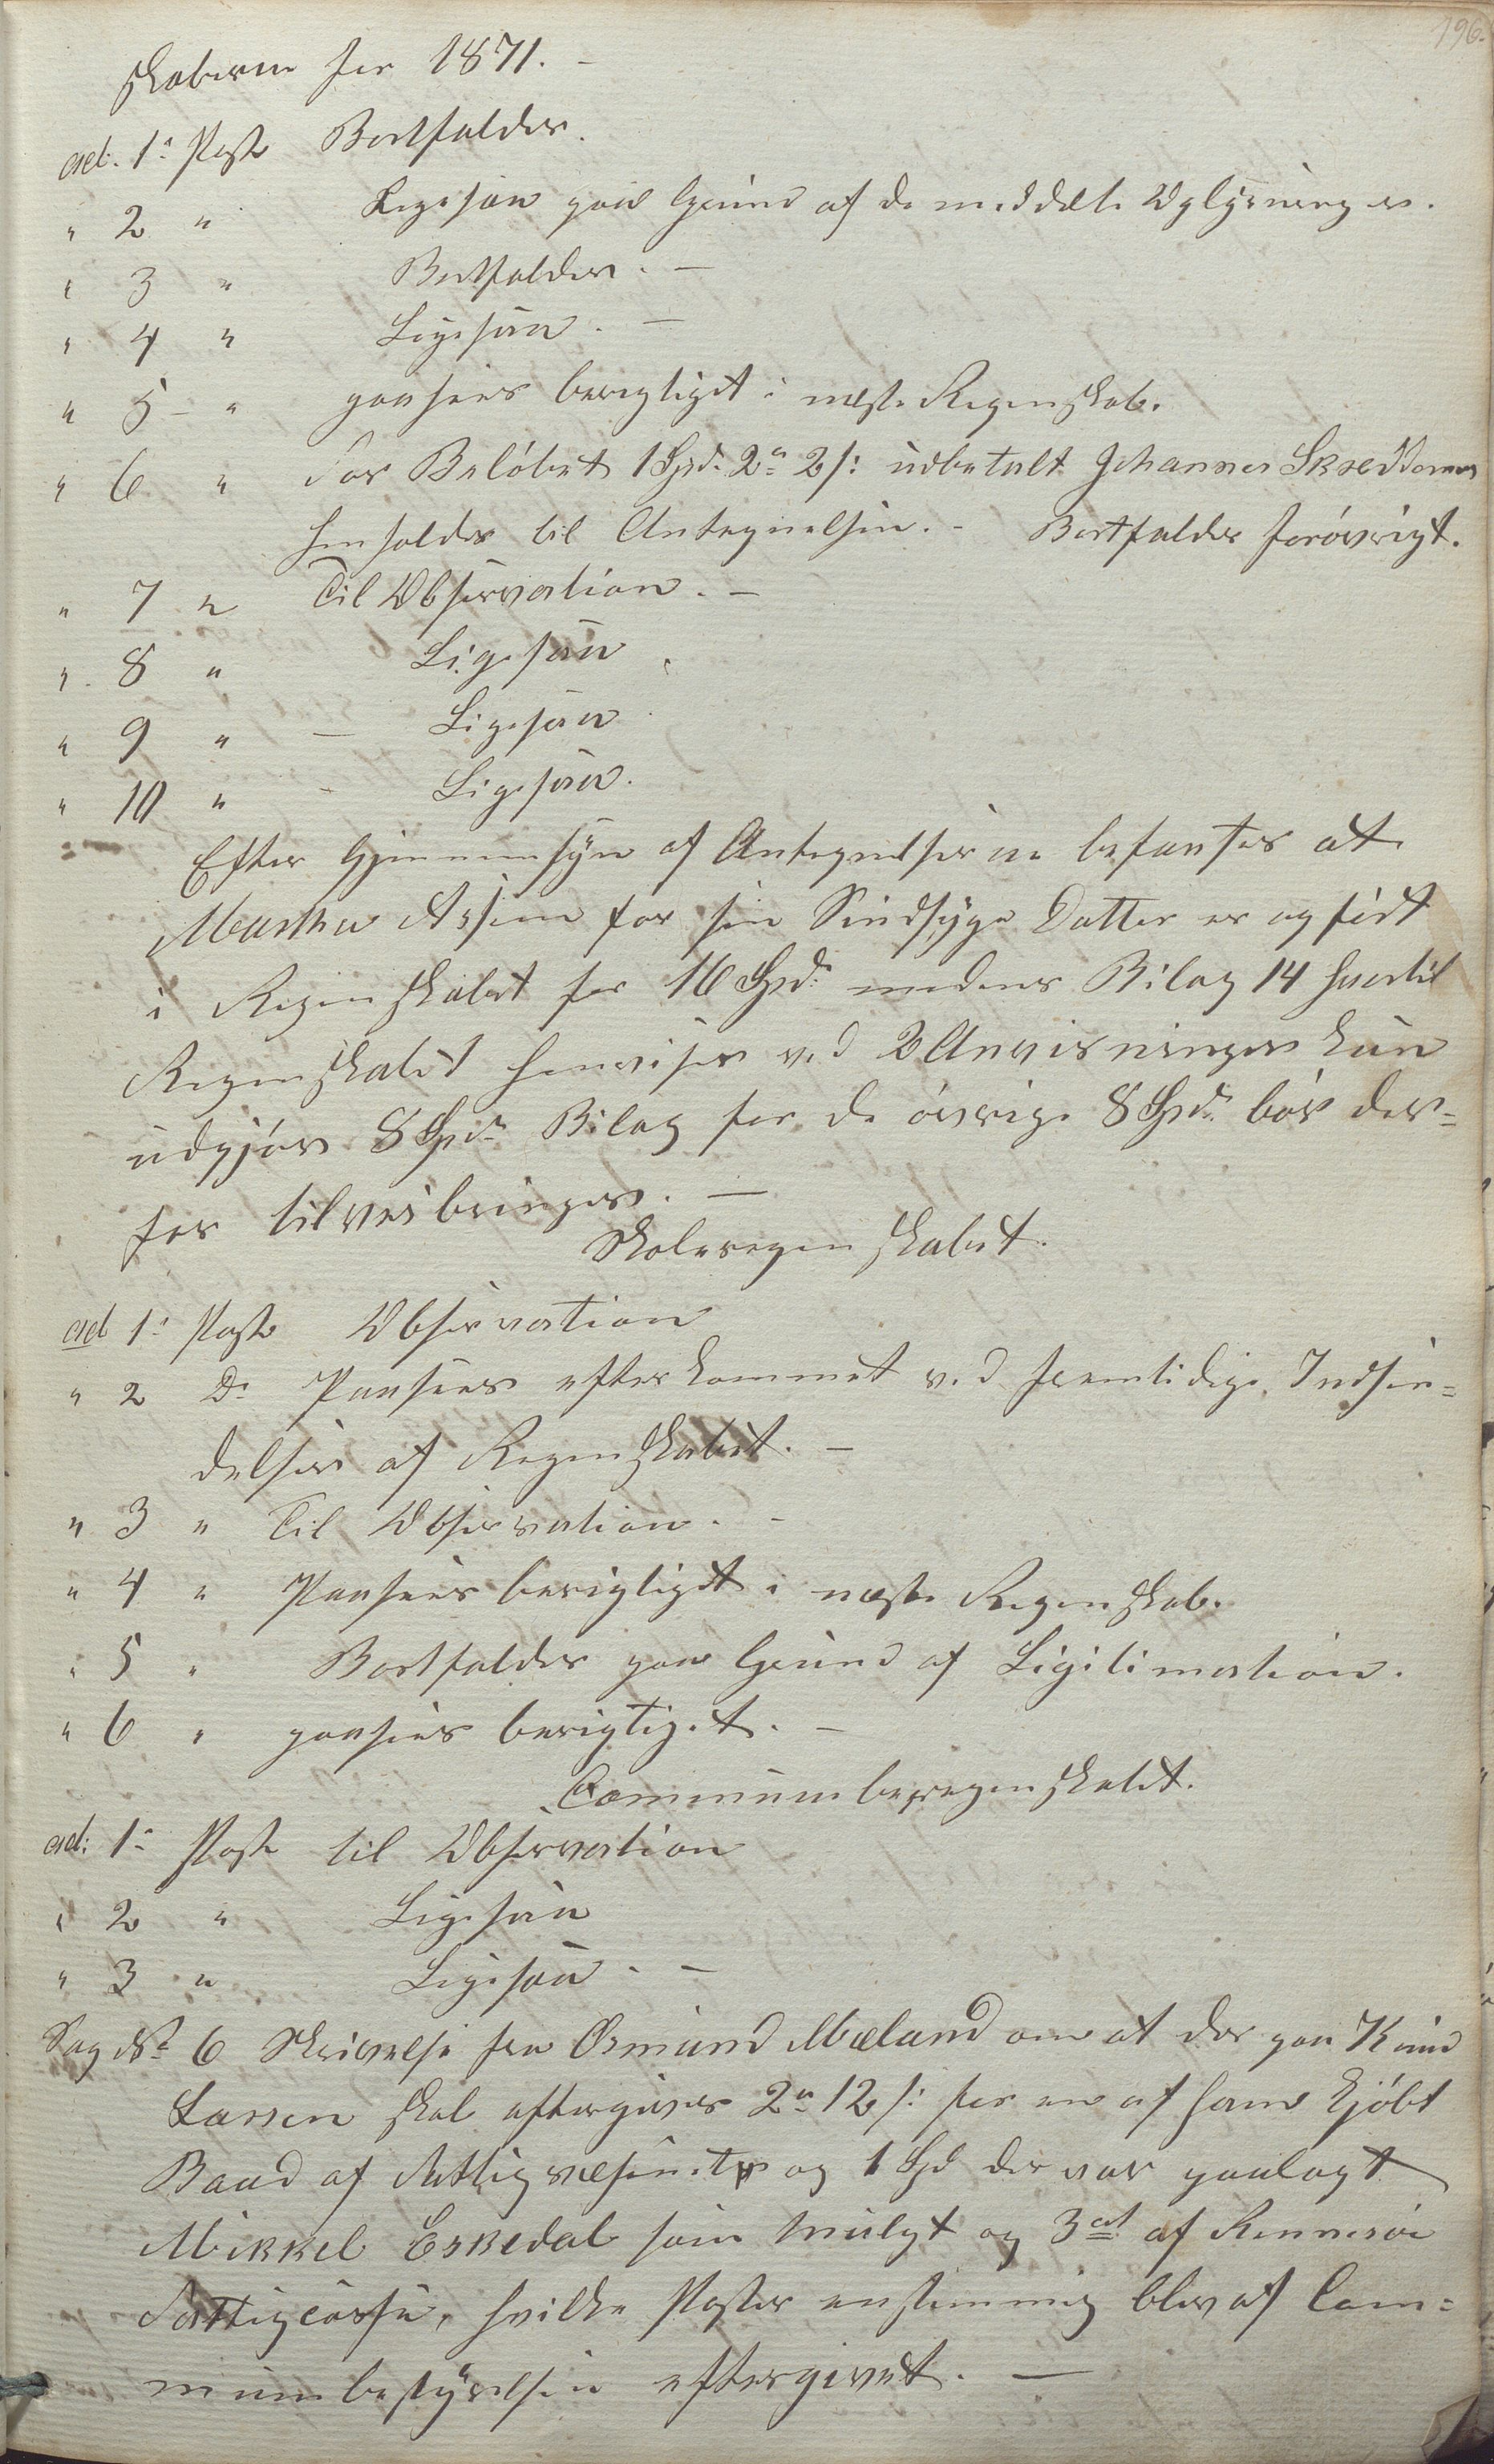 196.
skaberne for 1871. -
ad. 1e Post Bortfalder.
" 2 " Ligesaa paa Grund af de meddelte Oplysninger.
" 3 " Bortfalder. -
" 4 " Ligesaa. -
" 5 - " paasees berigtiget i næste Regenskab.
" 6 " For Beløbet 1 Spd. 2 " 2 s: udbetalt Johannes Skreddernes
henholdes til Antegnelsen. - Bortfalder forøvrigt.
" 7 " Til Observation. -
" 8 " Ligesaa
" 9 " - Ligesaa
" 10 " - Ligesaa.
Efter Gjennemsyn af Antegnelserne befantes at
Martha for sin Sindsyge Datter er opført
i Regenskabet for 16 Spd: medens Bilag 14 hvortil
Regenskabet henviser ved 2 Anvisninger kun
udgjør 8 Spd. Bilag for de øvrige 8 Spd. bør der=
for tilveibringes. -
Skoleregenskabet.
ad 1e Post Observation
" 2 Do Paasees efterkommet ved fremtidige Indsen=
delser af Regenskabet. -
" 3 " Til Observation. -
" 4 " Paasees berigtiget i næste Regenskab.
" 5 " Bortfalder paa Grund af Ligitimation.
" 6 " paasees berigtiget. -
Communeregenskabet.
ad: 1e Post til Observation
" 2 " Ligesaa
" 3 " Ligesaa. -
Sag No 6 Skrivelse fra Osmund Mæland om at der paa Knud
Larsen skal eftergives 2 " 12 s: for en af ham kjøbt
Baad af Fattigvæsenet og 1 Spd der var paalagt
Mikkel Eskedal som Mulgt og 3 af Rennesøe
Fattigcasse, hvilke Poster enstemmig blev af Com=
munebestyrelsen eftergivet. -